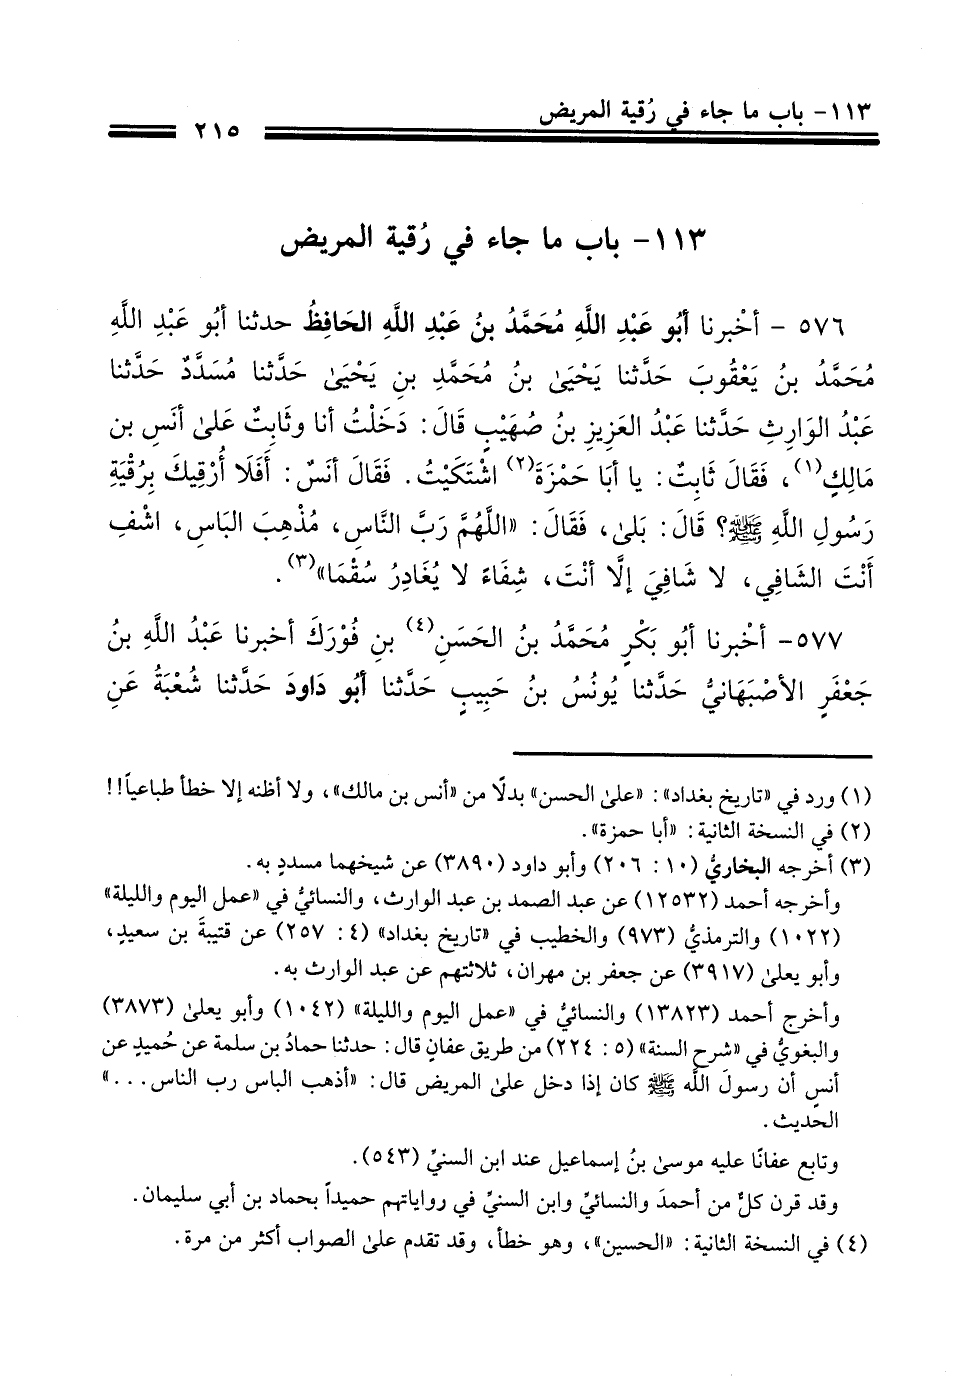 ١١٣- باب ما جاء في رُقية المريض
٢١٥
١١٣- باب ما جاء في رُقية المريض
٥٧٦ - أخْبرنا أَبُو عَبْدِ اللَّهِ مُحَمَّدُ بنُ عَبْدِ اللَّهِ الحَافِظُ حدثنا أبُو عَبْدِ اللَّهِ
مُحَمَّدُ بنُ يَعْقُوبَ حَدَّثنا يَحْيَىٰ بنُ مُحَمَّدِ بنِ يَحْيَىٰ حَدَّثنا مُسَدَّدٌ حَدَّثنا
عَبْدُ الوَارِثِ حَدَّثنا عَبْدُ العَزِيزِ بنُ صُهَيْبٍ قَالَ: دَخَلْتُ أنا وثَابِتٌ عَلىٰ أنَسِ بنِ
مَالِكٍ(١)، فَقَالَ ثَابِتٌ: يا أبَا حَمْزَةَ(٢) اشْتَكَيْتُ. فَقَالَ أنَسٌ: أَفَلَا أُرْقِيكَ بِرُقْيَةِ
رَسُولِ اللَّهِ ﷺ؟ قَالَ: بَلىٰ، فَقَالَ: «اللَّهُمَّ رَبَّ النَّاسِ، مُذْهِبَ البَاسِ، اشْفِ
أَنْتَ الشَّافِي، لا شَافِيَ إلَّا أنْتَ، شِفَاءً لا يُغَادِرُ سُقْمَا»(٣).
٥٧٧- أخْبرنا أبُو بَكْرٍ مُحَمَّدُ بنُ الحَسَنِ(٤) بنِ فُورَكَ أخبرنا عَبْدُ اللَّهِ بنُ
جَعْفَرٍ الأصْبَهَانيُّ حَدَّثنا يُونُسُ بنُ حَبِيبٍ حَدَّثنا أبُو دَاودَ حَدَّثنا شُعْبَةُ عَنِ
(١) ورد في «تاريخ بغداد»: «علىٰ الحسن» بدلًا من «أنس بن مالك»، ولا أظنه إلا خطأ طباعياً!!
(٢) في النسخة الثانية: «أبا حمزة».
(٣) أخرجه البخاريُّ (١٠: ٢٠٦) وأبو داود (٣٨٩٠) عن شيخهما مسددٍ به.
وأخرجه أحمد (١٢٥٣٢) عن عبد الصمد بن عبد الوارث، والنسائيُّ في «عمل اليوم والليلة»
(١٠٢٢) والترمذيُّ (٩٧٣) والخطيب في «تاريخ بغداد» (٤: ٢٥٧) عن قتيبةَ بن سعيدٍ،
وأبو يعلىٰ (٣٩١٧) عن جعفر بن مهران، ثلاثتهم عن عبد الوارث به.
وأخرج أحمد (١٣٨٢٣) والنسائيُّ في «عمل اليوم والليلة» (١٠٤٢) وأبو يعلىٰ (٣٨٧٣)
والبغويُّ في «شرح السنة» (٥: ٢٢٤) من طريق عفانٍ قال: حدثنا حمادُ بن سلمة عن حُميدٍ عن
أنسٍ أن رسولَ اللَّه ﷺ كان إذا دخل علىٰ المريض قال: «أذهب الباس رب الناس...»
الحديث.
وتابع عفانًا عليه موسىٰ بنُ إسماعيل عند ابن السنيِّ (٥٤٣).
وقد قرن كلٌّ من أحمدَ والنسائيِّ وابن السنيِّ في رواياتهم حميداً بحماد بن أبي سليمان.
(٤) في النسخة الثانية: «الحسين»، وهو خطأ، وقد تقدم علىٰ الصواب أكثر من مرة.